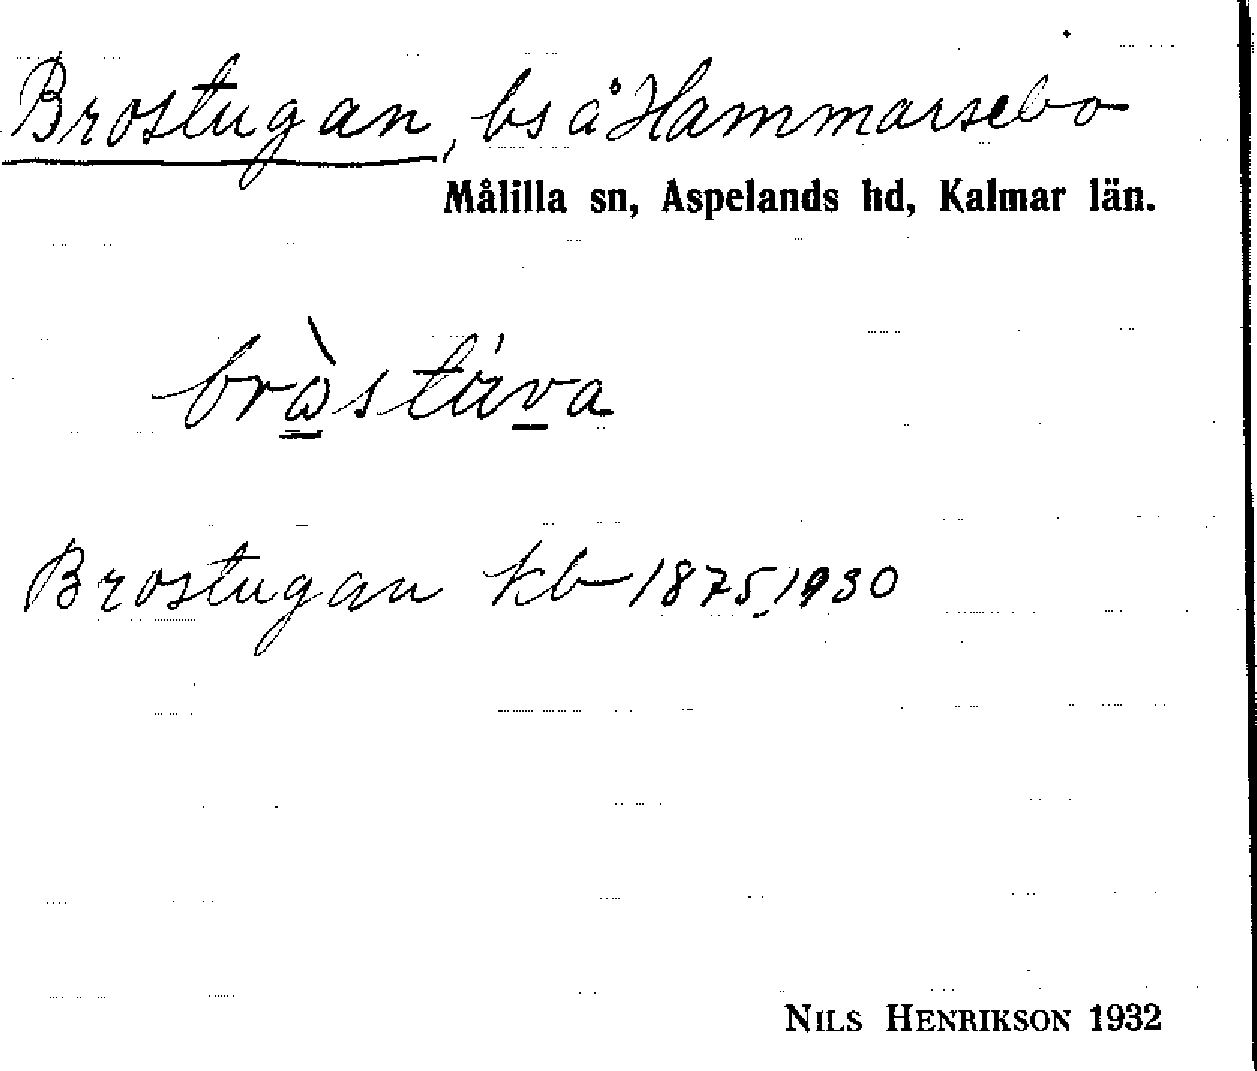 Brostugan, bs å Hammarsebo
Målilla sn, Aspelands hd, Kalmar län.
Brostugan kb 1875, 1930
NILS HENRIKSON 1932